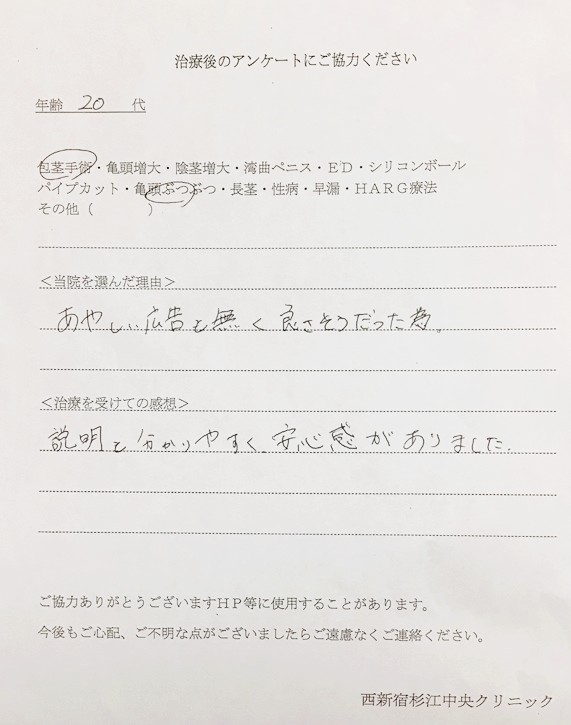 治療後のアンケートにご協力ください
年齢 20 代
包茎手術・亀頭増大・陰茎増大・湾曲ペニス・ED・シリコンボール
パイプカット・亀頭ぶつぶつ・長茎・性病・早漏・HARG療法
その他( )
<当院を選んだ理由>
あやしい広告も無く良さそうだった為。
<治療を受けての感想>
説明も分かりやすく、安心感がありました。
ご協力ありがとうございますHP等に使用することがあります。
今後もご心配、ご不明な点がございましたらご遠慮なくご連絡ください。
西新宿杉江中央クリニック